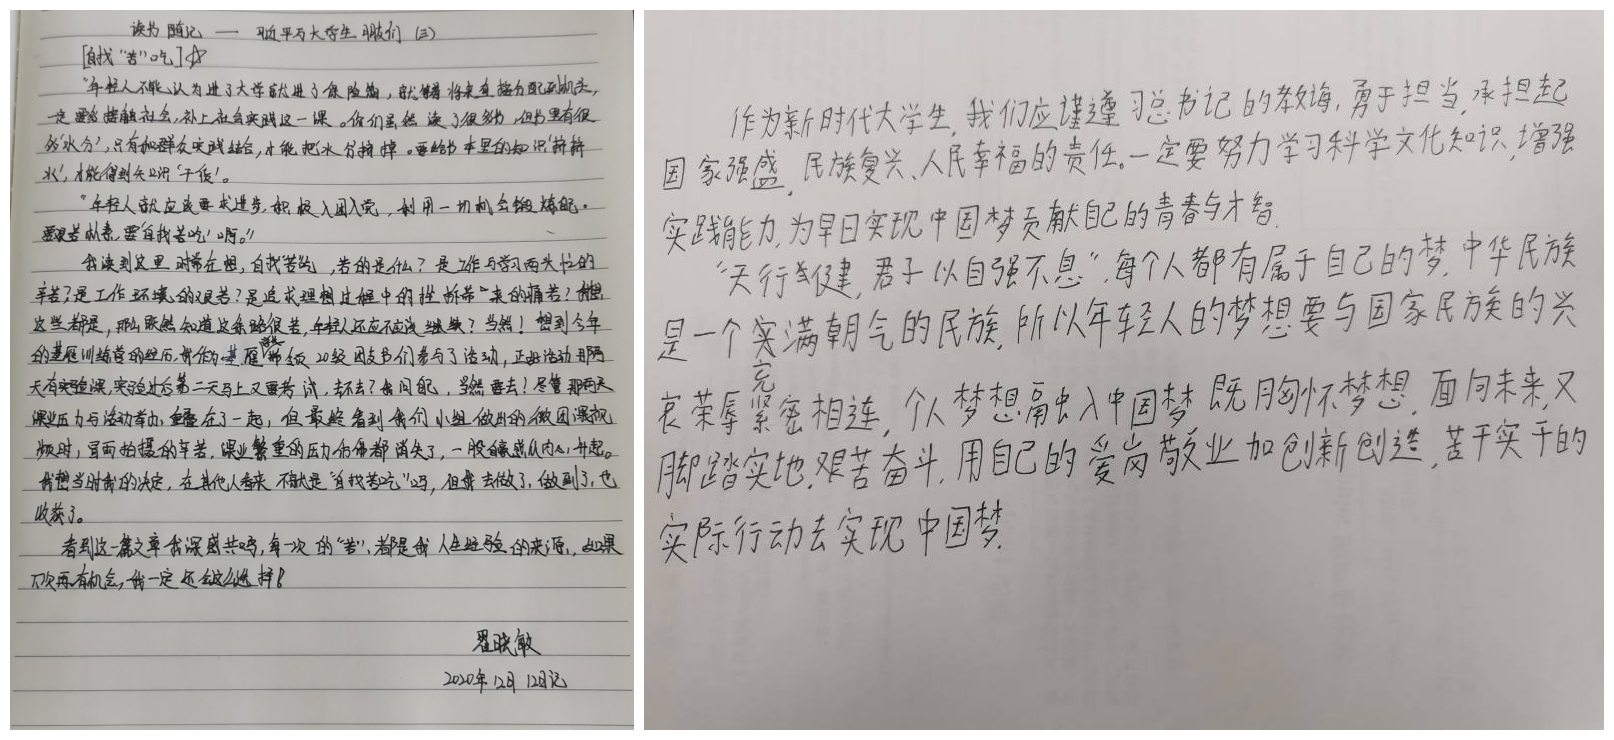 读书随记 — 习近平与大学生朋友们 (三)
[自找“苦”吃]☆
“年轻人不能认为进了大学就进了保险箱，就等着将来直接分配到机关，
一定要多接触社会，补上社会实践这一课。你们虽然读了很多书，但书里有很
多‘水分’，只有和群众实践结合，才能把水分挤掉。要给书本里的知识‘挤挤
水’，才能得到知识‘干货’。
“年轻人就应该要求进步，积极入团入党，利用一切机会锻炼自己。
要艰苦朴素，要‘自找苦吃’啊。”
我读到这里，时常在想，自找苦吃，苦的是什么？是工作与学习两头忙的
辛苦？是工作环境的艰苦？是追求理想过程中的挫折带来的痛苦？我想，
这些都是，那么既然知道这条路很苦，年轻人还应不应该继续？当然！想到今年
的基层训练营的经历，我作为基层 20级团支书们参与了活动，正好活动那两
天有实验课，实验过后第二天马上又要考试，去不去？我问自己，当然要去！尽管那两天
课业压力与活动压力重叠在了一起，但最终看到我们小组做出的微团课视
频时，冒雨拍摄的辛苦，课业繁重的压力仿佛都消失了，一股自豪感从内心升起。
我想当时我的决定，在其他人看来不就是“自找苦吃”吗，但我去做了，做到了，也
收获了。
看到这一篇文章我深感共鸣，每一次的“苦”，都是我人生经验的来源，如果
下次再有机会，我一定还会这么选择！
翟晓敏
2020年12月12日记
作为新时代大学生，我们应谨遵习总书记的教诲，勇于担当，承担起
国家强盛，民族复兴、人民幸福的责任。一定要努力学习科学文化知识，增强
实践能力，为早日实现中国梦贡献自己的青春与才智．
“天行健，君子以自强不息”，每个人都有属于自己的梦，中华民族
是一个充满朝气的民族，所以年轻人的梦想要与国家民族的兴
衰荣辱紧密相连，个人梦想融入中国梦 既胸怀梦想，面向未来，又
脚踏实地，艰苦奋斗，用自己的爱岗敬业加创新创造，苦干实干的
实际行动去实现中国梦．